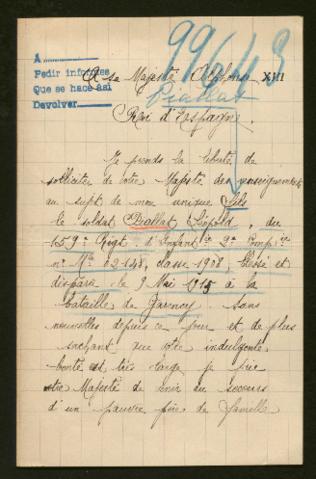 99643
A
Pedir informes
Que se hace así
Devolver
A sa Majesté Alphonse XIII
Piallat
Roi d'Espagne.
Je prends la liberté de
solliciter de votre Majesté des renseignements
au sujet de mon unique fils
le soldat Piallat Léopold, du
159e Régt d'Infantie 2e Compie
n° Mle 02148, classe 1908, blessé et
disparu le 9 Mai 1915 à la
bataille de Carency. Sans
nouvelles depuis ce jour et de plus
sachant que votre indulgente
bonté est très large je prie
votre Majesté de venir au secours
d'un pauvre père de famille